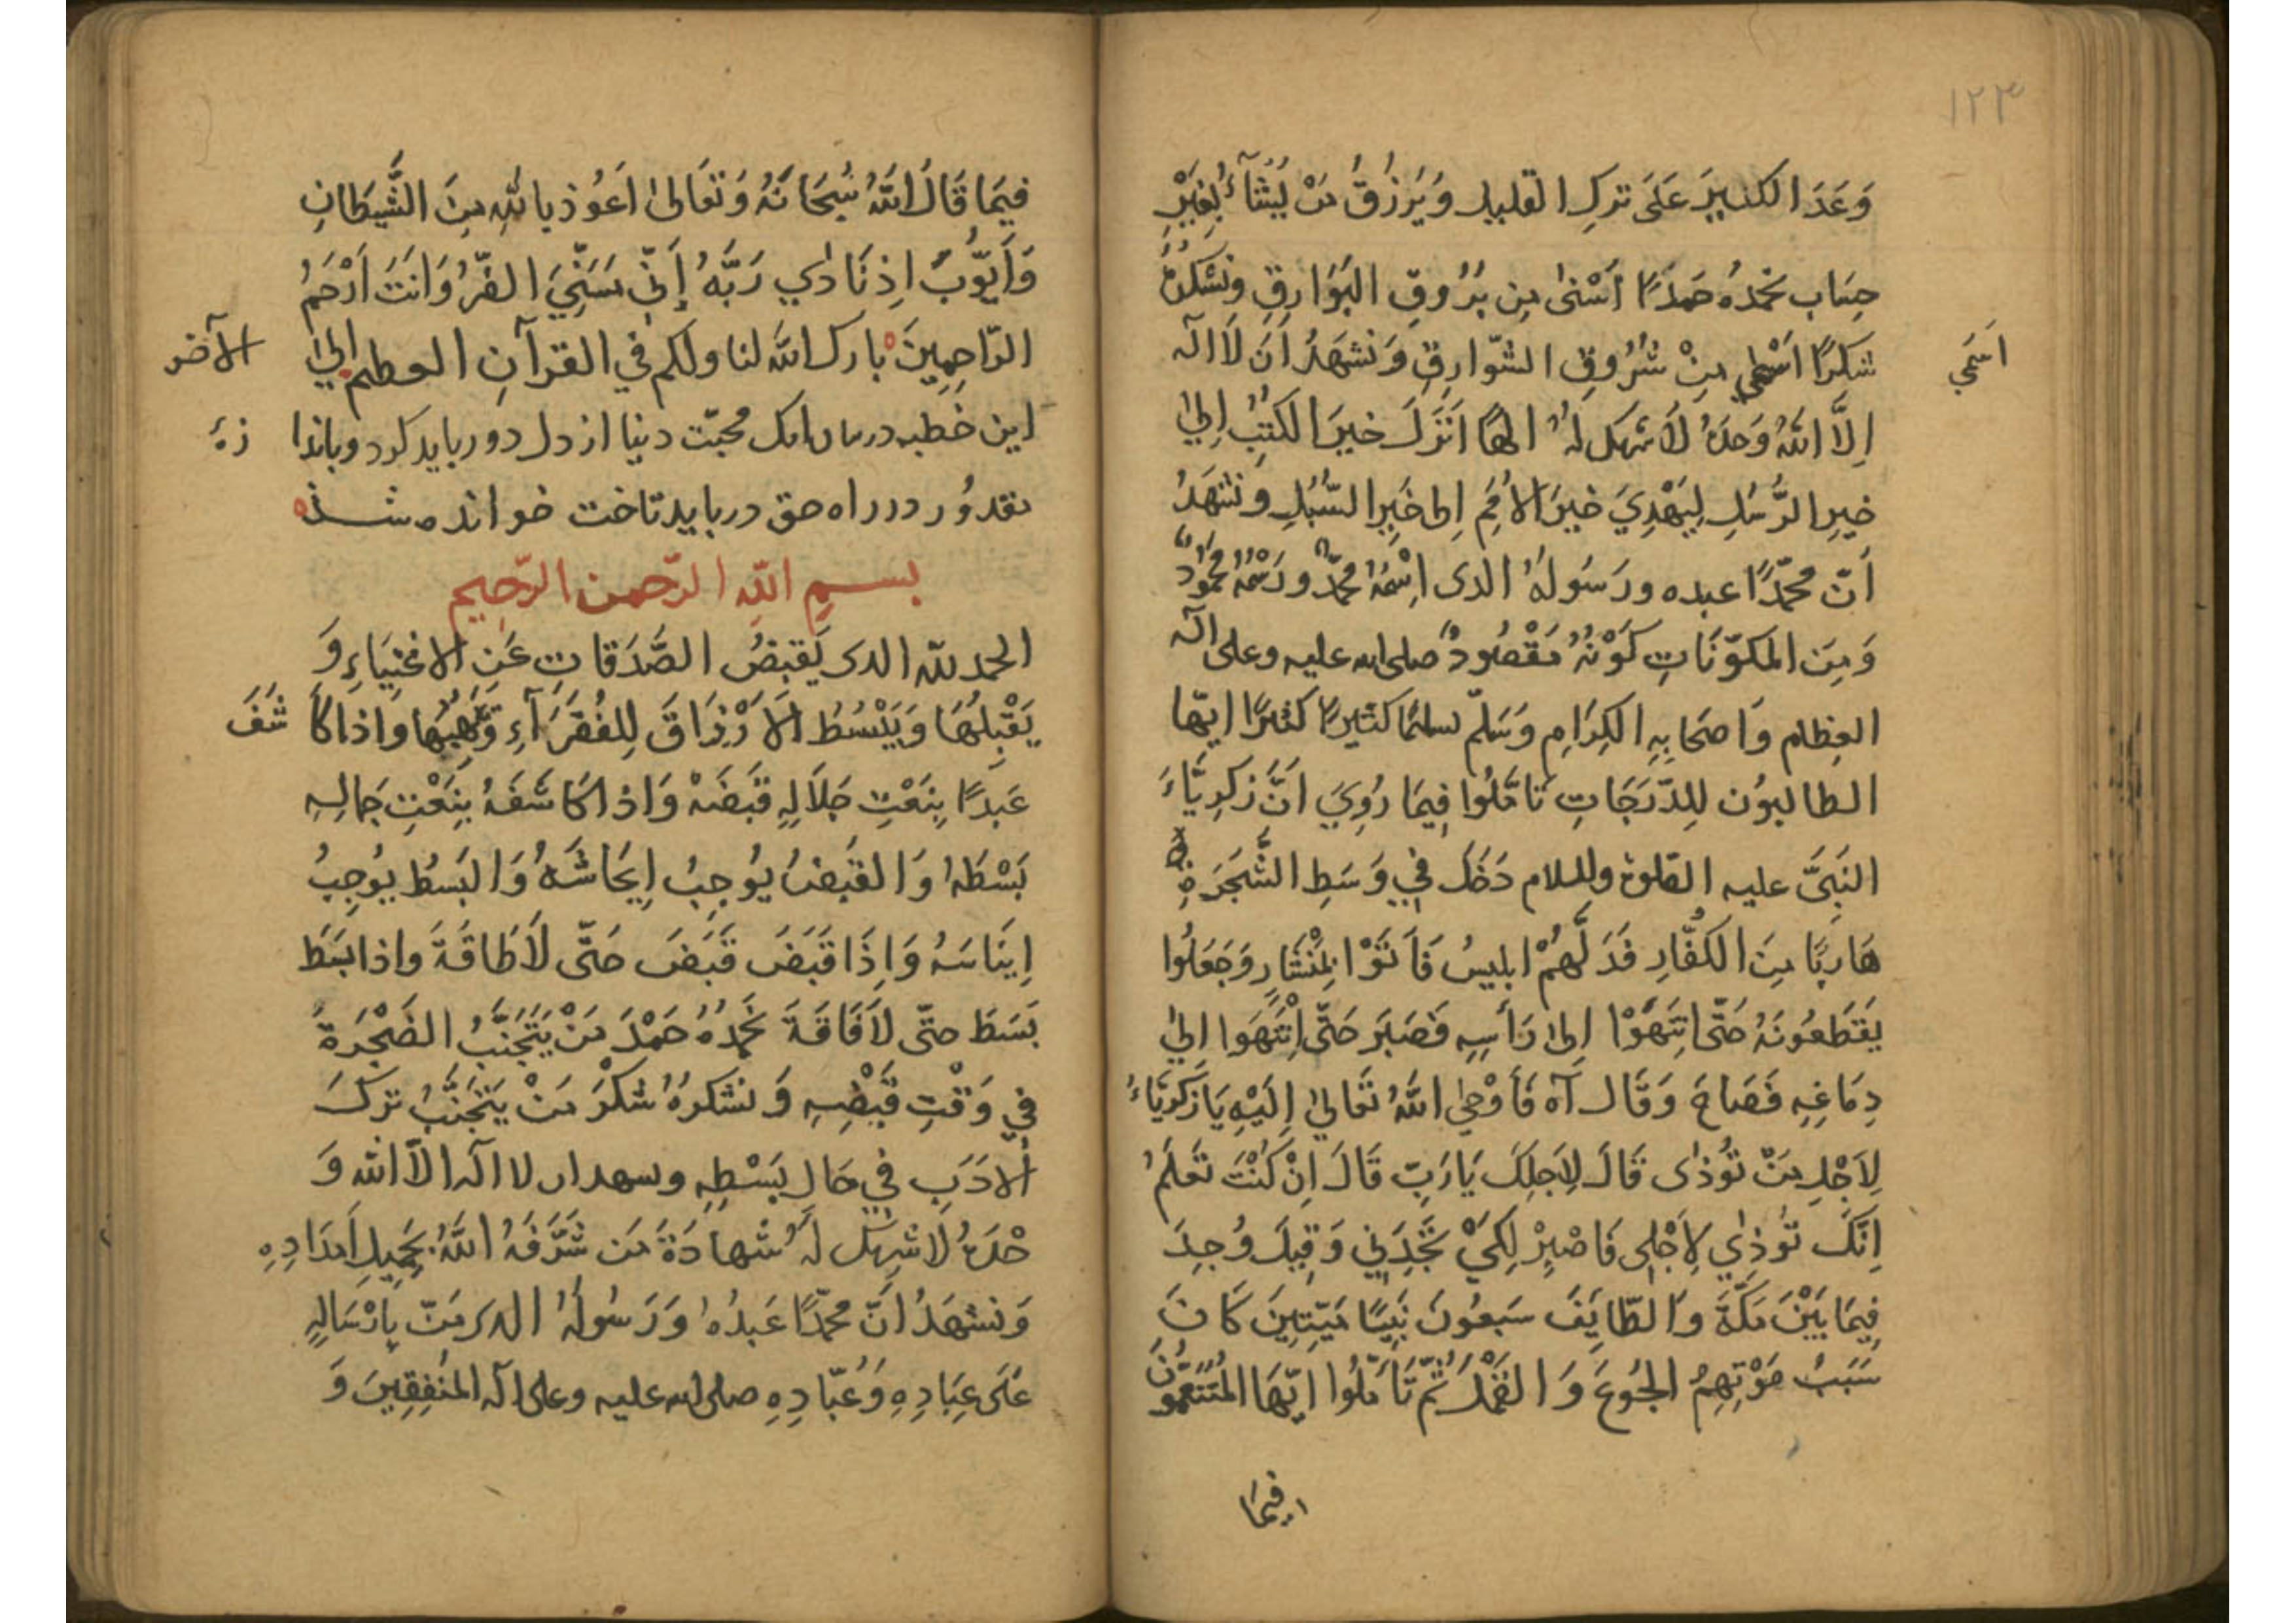 ١٢٣
وَعَدَ الكثيرَ عَلَى تركِ القليلِ وَيَرْزُقُ مَنْ يَشَآءُ بِغَيْرِ
حِسَاب نحمدُهُ حَمدًا اَسْنىٰ مِن بُرُوقِ البَوَارِقِ ونشكرُهُ
شكرًا اَسْمٰي مِنْ شُرُوقِ الشّوارِقِ وَنَشهَدُ اَنَ لَا اله
اَسْمٰي
اِلَّا اللهُ وَحدَهُ لَا شريك لهُ الهًا اَنزَلَ خيرَ الكتُبِ اِلىٰ
خيرِ الرُّسُلِ لِيَهْدِيَ خيرَ الاُمَمِ اِلى خَيرِ السُّبُلِ ونَشهَدُ
اَنّ محمّدًا عبده ورَسُولهُ الذى اِسْمُهُ محمّدٌ ورَسْمُهُ محمُودٌ
وَمِنَ المكوّنَاتِ كَوْنُهُ مَقْصُودٌ صلى الله عليه وعلى اله
العِظام وَاصحَابِهِ الكِرَامِ وَسَلّم تسليمًا كثيرًا كثيرًا ايّها
الطالبوُن للِدّرَجَاتِ تَامَّلُوا فِيمَا رُوِيَ اَنَّ زكرِيّاءَ
النّبِيَّ عليه الصّلوة والسلام دَخَلَ فِي وَسَطِ الشَّجَرَةِ
هَارِبًا مِنَ الكُفَّارِ فَدَلَّهُمْ ابليسُ فَاَتَوْا بمِنْشَارٍ وَجَعَلُوا
يَقطَعُونَهُ حَتّى انتَهَوْا اِلىٰ رَأسِهِ فَصَبَر حَتّى اِنْتَهَوا اِلىٰ
دِمَاغِهِ فَصَاحَ وَقَالَ آه فَأَوْحىٰ اللهُ تَعَالىٰ اِلَيْهِ يَا زَكَرِيّاءُ
لِاَجْلِ مَنْ تُؤذٰى قَالَ لِاَجلِكَ يَارَبِّ قَالَ اِنْ كُنْتَ تَعلَمُ
اِنَّكَ تُؤذٰي لِاَجْلِى فَاصْبِرْ لِكَيْ تَجِدَنِي وَقِيلَ وُجِدَ
فِيمَا بَيْنَ مَكَّةَ وَالطّايِفَ سَبعُونَ نَبِيًّا مَيّتِينَ كَانَ
سَبَبُ مَوْتِهِمُ الجُوعَ وَالقَمْلَ ثُمّ تَامّلُوا ايّهَا المُتَنَعِّمُونَ
فيمَا
فِيمَا قَالَ اللهُ سُبحَانَهُ وَتَعَالىٰ اَعُوذ بِاللهِ مِنَ الشَّيطَانِ
وَاَيّوُبَ اِذ نَادٰي رَبَّهُ اِنِّي مَسَّنِيَ الضّرُّ وَاَنتَ اَرْحَمُ
الرّاحِمِينَ بارك الله لنا ولكم في القرآنِ العظيم اِلىٰ الآخر
اين خطبه در بيان انك محبّت دنيا از دل دور بايد كرد وباندازهٔ
مقدُور در راه حق دربايد تاخت خوانده شده
بسمِ اللّهِ الرّحمن الرّحِيمِ
الحمد للّه الذى يَقبِضُ الصَّدَقات عَنِ الاغنِيَاءِ وَ
يَقْبِلُهَا وَيَبْسُطُ الاَرْزَاقَ لِلفُقَرَآءِ وَيَهِبُهَا وَاذا كَاشَفَ
عَبدًا بِنَعْتِ جَلَالِهِ قَبَضَهُ وَاذا كَاشَفَهُ بِنَعْتِ جَمالِهِ
بَسْطَهُ وَالقَبضُ يُوجِبُ اِيحَاشَهُ وَالبَسطُ يُوجِبُ
اِينَاسَهُ وَاِذَا قَبَضَ قَبَضَ حَتّى لَاطَاقَةَ واذا بَسَطَ
بَسَطَ حتّى لَافَاقَةَ نَحمَدُهُ حَمْدَ مَنْ يَتَجَنَّبُ الضَجْرَةَ
فِي وَقْتِ قَبْضِهِ وَنشكرهُ شكْرَ مَنْ يَتَجَنَّبُ تركَ
الادَبِ فِي حَالِ بَسْطِهِ ونسهد ان لا اله الّا الله وَ
حْدَهُ لَا شَرِيك لَهُ شهادَةَ مَن شَرَّفَهُ اللهُ بجَمِيلِ اَمدَادِهِ
وَنشهَدُ اَنَّ محمّدًا عَبدُهُ وَرَسُولُهُ الذى مَنّ بِاِرْسَالِهِ
عَلَى عِبَادِهِ وَعُبّادِهِ صلى الله عليه وعلى اله المُنفِقِينَ وَ